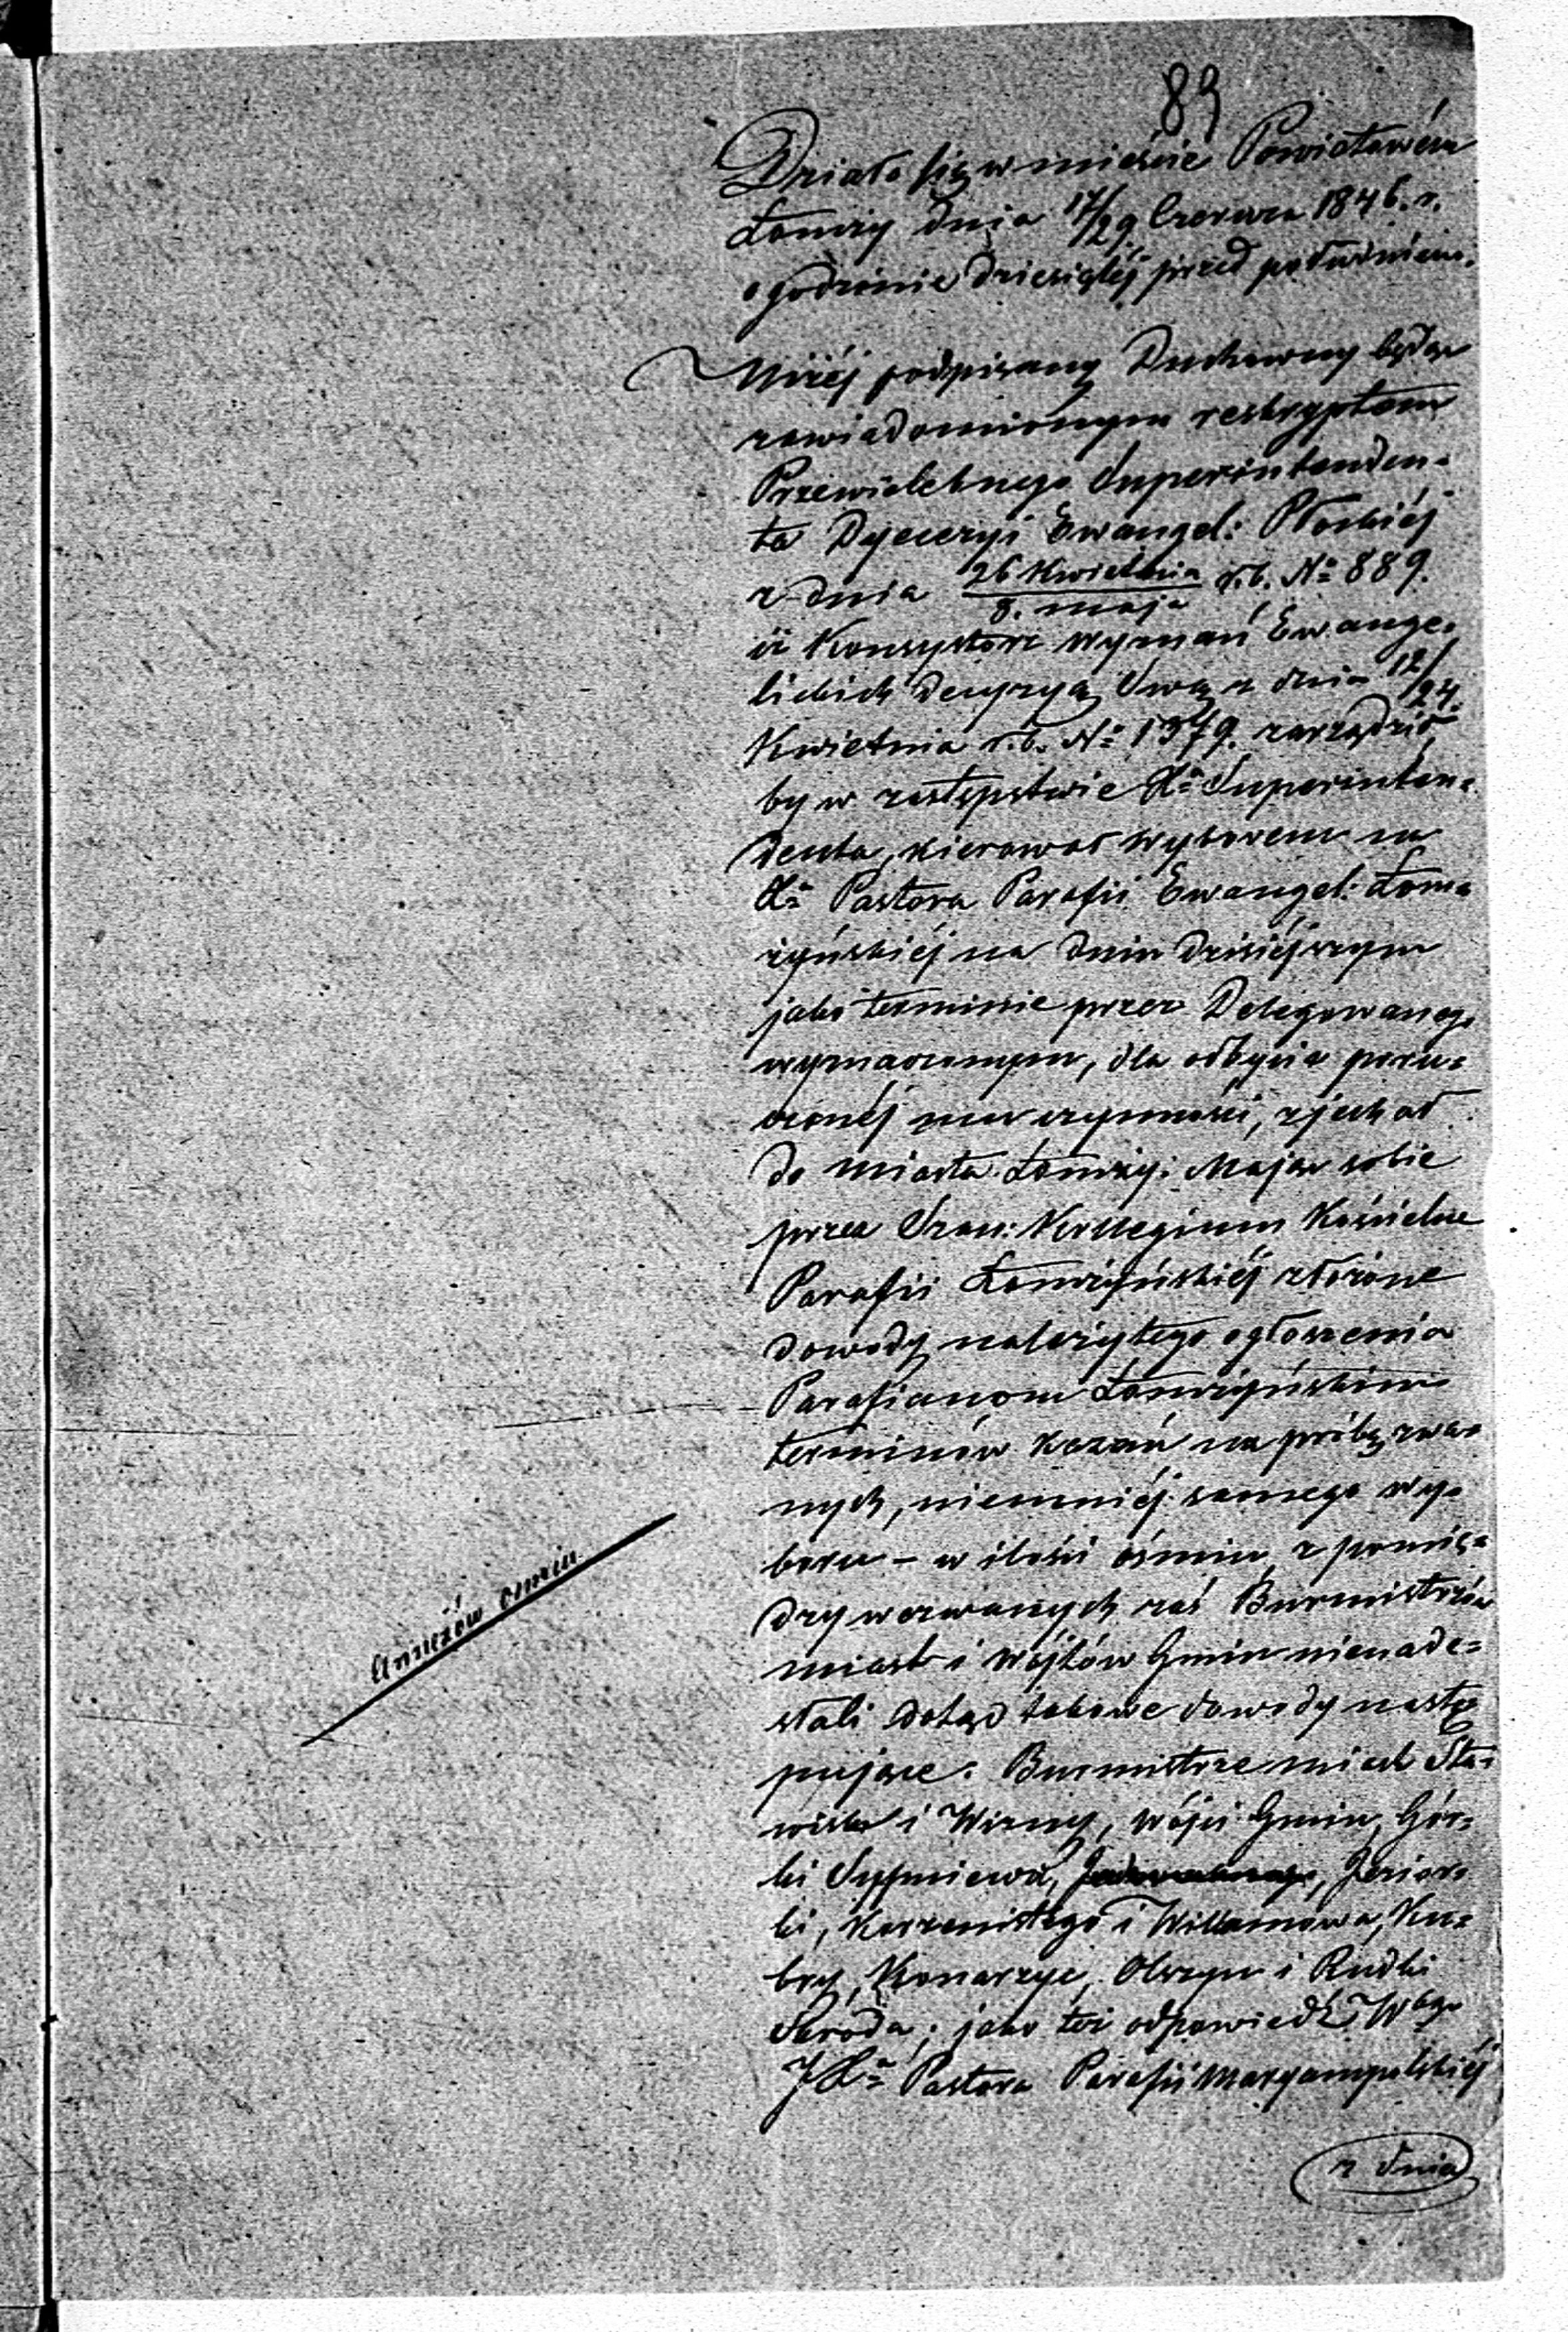 89
Działo się w mieście Powiatowém
Łomży dnia 17/29. Czerwca 1846. r.
o godzinie dziesiątéj przed południem.
Niżéj podpisany Duchowny będąc
zawiadomionym reskryptem
Przewielebnego Superintenden-
ta Dyecezyi Ewangel: Płockiéj
z dnia 26 Kwietnia / 8. maja r.b. No 889.
iż Konsystorz Wyznań Ewange-
lickich decyzyą Swą z dnia 12/24.
Kwietnia r.b. No 1379. zarządził,
by w zastępstwie Xa Superinten-
denta, kierował wyborem na
Xa Pastora Parafii Ewangel: Łom-
żyńskiéj na dniu dzisiéjszym
jako terminie przez Delegowanego
wyznaczonym, dla odbycia poru-
czonéj mu czynności, zjechał
do miasta Łomży. Mając sobie
przez Szan: Kollegium Kościelne
Parafii Łomżyńskiéj złożone
dowody należytego ogłoszenia
Parafianom Łomżyńskim
terminów kazań na próbę zwa-
nych, niemniéj samego wy-
boru – w ilości ośmiu, z pomię-
dzy wezwanych zaś Burmistrzów
miast i Wójtów Gmin nienade-
słali dotąd takowe dowody nastę
pujące: Burmistrze miast Sta-
wisk i Wizny, Wójci Gmin, Gór-
ki Sypniewa, Jezior-
ki, Korzenistego i Willamowa, Ku-
bry, Konarzyc, Olszyn i Rudki
Skroda; jako też odpowiedź Wgo
JXa Pastora Parafii Maryampolskiéj
z dnia
Annexów osmiu